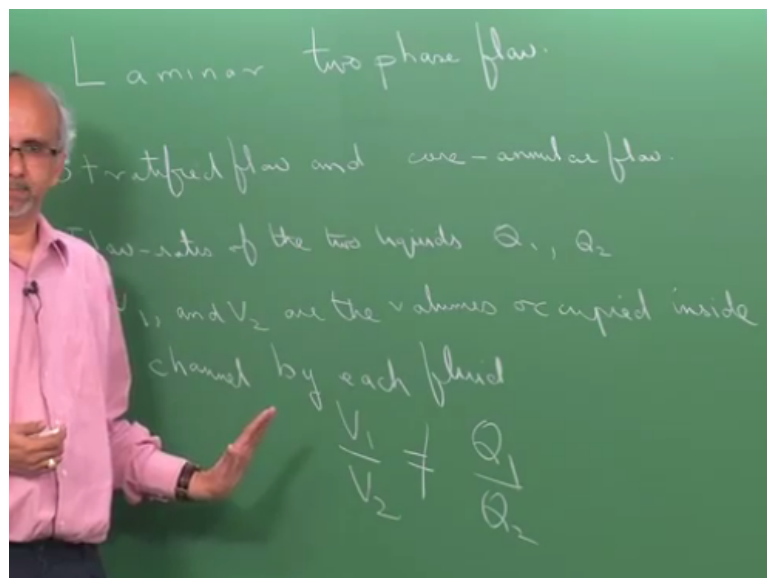 Laminar two phase flow.
Stratified flow and core-annular flow.
Flow-rates of the two liquids Q1, Q2
V1, and V2 are the volumes occupied inside
channel by each fluid
V1/V2 ≠ Q1/Q2